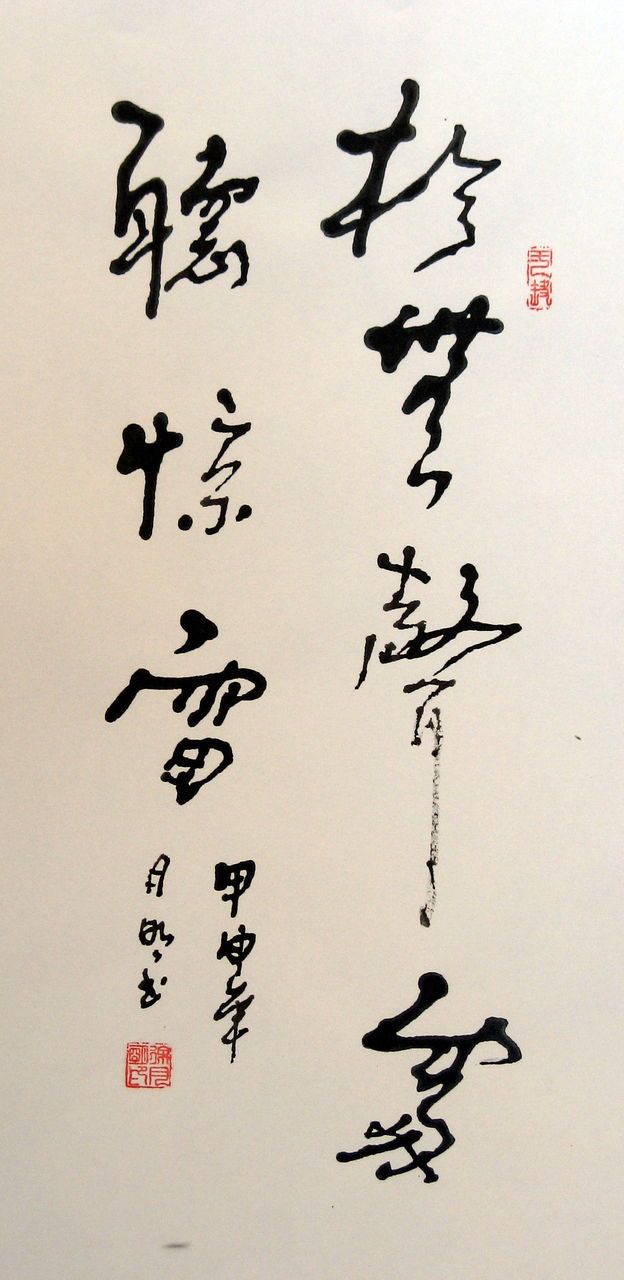 於無聲處
聽驚雷
甲申年
月明書